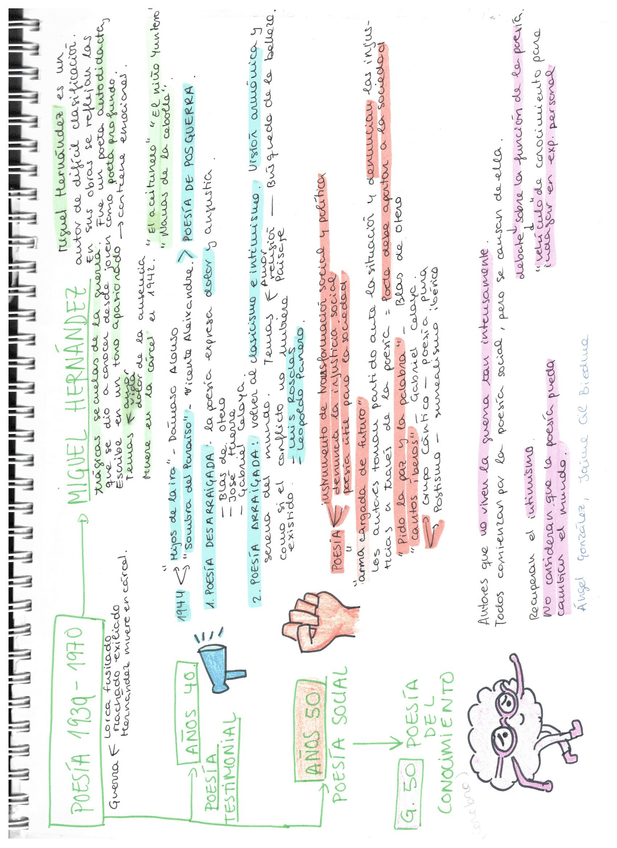 POESÍA 1939-1970
Guerra
Lorca fusilado
Machado exiliado
Hernández muere en cárcel.
MIGUEL HERNÁNDEZ
Miguel Hernández es un
autor de difícil clasificación.
En sus obras se reflejan las
trágicas secuelas de la guerra. Fue un poeta autodidacta,
que se dio a conocer desde joven como poeta profundo.
Escribe en un tono apasionado → contiene emociones.
Temas
amor
dolor de la ausencia
"El aceitunero" "El niño Yuntero"
Muere en la cárcel el 1942.
"Nanas de la cebolla".
AÑOS 40
POESÍA
TESTIMONIAL
1944
"Hijos de la ira" - Dámaso Alonso
"Sombra del Paraíso" - Vicente Aleixandre.
POESÍA DE POSGUERRA
1. POESÍA DESARRAIGADA: la poesía expresa dolor y angustia.
- Blas de Otero
- José Hierro
- Gabriel Celaya.
2. POESÍA ARRAIGADA: volver al clasicismo e intimismo. Visión armónica y
serena del mundo. Temas
Amor
religión - Búsqueda de la belleza.
Paisaje
como si el conflicto no hubiera
existido.
- Luis Rosales
Leopoldo Panero.
AÑOS 50
POESÍA SOCIAL
POESÍA
instrumento de transformación social y política
denuncia la injusticia social
poesía útil para la sociedad
"arma cargada de futuro"
Los autores toman partido ante la situación y denuncian las injus-
ticias a través de la poesía = Poeta debe aportar a la sociedad
"Pido la paz y la palabra" - Blas de Otero
"Cantos íberos" - Gabriel Celaya.
Grupo Cántico - poesía pura
Postismo - surrealismo ibérico
G. 50
POESÍA
DEL
CONOCIMIENTO
(cerebro)
Autores que no viven la guerra tan intensamente.
Todos comienzan por la poesía social, pero se cansan de ella.
Recuperan el intimismo.
No consideran que la poesía pueda
cambiar el mundo.
debate sobre la función de la poesía.
"vehículo" de conocimiento para
indagar en exp. personal
Ángel González, Jaime Gil Biedma